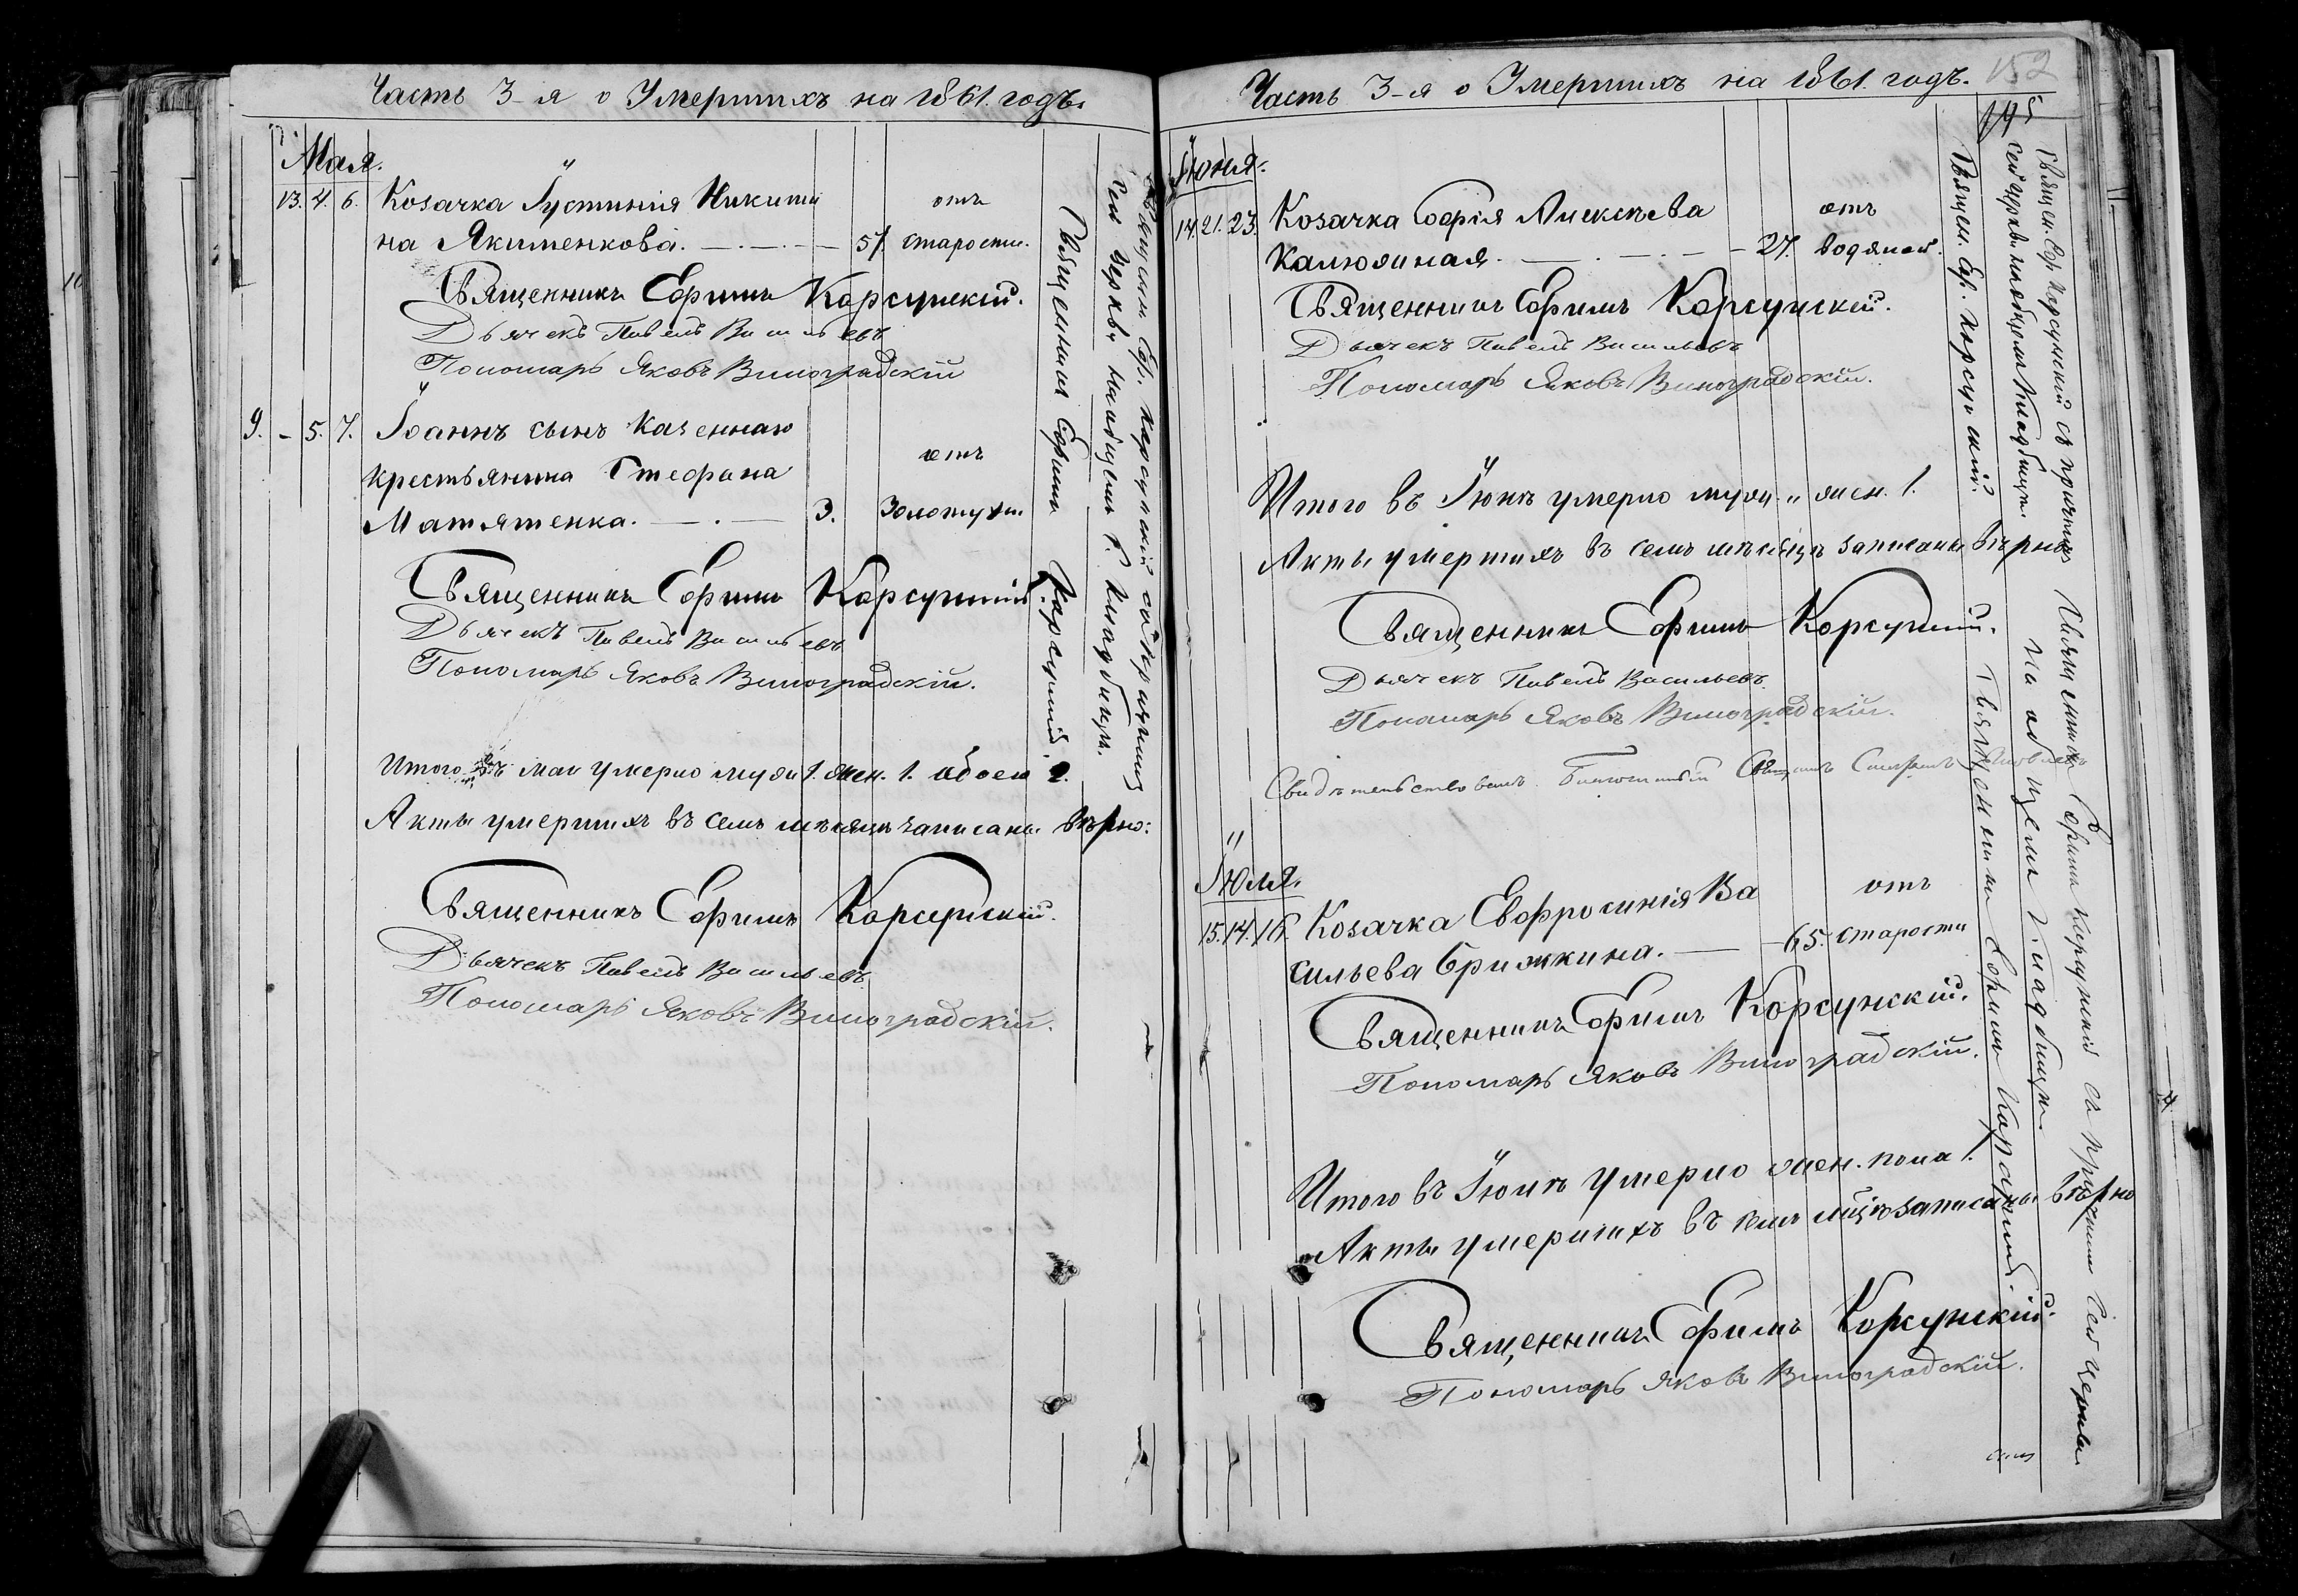 Часть 3-я о Умершихъ на 1861. годъ.
Мая.
13. 4. 6. Козачка Іустинія Никити
на Якименкова. — . — . — 57. отъ старости.
Священникъ Ефимъ Корсунскій.
Дьячекъ Павелъ Васильевъ
Пономарь Яковъ Виноградскій
9. - 5. 7. Іоаннъ сынъ казеннаго
крестьянина Стефана
Матятенка. — . — 3. отъ Золотухи.
Священникъ Ефимъ Корсунскій.
Дьячекъ Павелъ Васильевъ
Пономарь Яковъ Виноградскій.
Итого въ маи умерло мужи 1. жен. 1. обоего 2.
Акты умершихъ въ семъ мѣсяцѣ записаны вѣрно:
Священникъ Ефимъ Корсунскій.
Дьячекъ Павелъ Васильевъ.
Пономарь Яковъ Виноградскій.
Священникъ Ефимъ Корсунскій.
сей церкви на общемъ г. кладбищѣ.
Священникъ Еф. Корсунскій съ причтомъ
Часть 3-я о Умершихъ на 1861. годъ.
152
145
Іюня.
14. 21. 23. Козачка Софія Алексѣева
Калюжная. — . — . — 27. отъ водяной.
Священникъ Ефимъ Корсунскій.
Дьячекъ Павелъ Васильевъ
Пономарь Яковъ Виноградскій.
Итого въ Іюнѣ умерло мужи. „ жен. 1.
Акты умершихъ въ семъ мѣсяцѣ записаны вѣрно
Священникъ Ефимъ Корсунскій.
Дьячекъ Павелъ Васильевъ.
Пономарь Яковъ Виноградскій.
Свидѣтельствовалъ Благочинный Священ
Іюля.
15. 14. 16. Козачка Евфросинія Ва
сильева Брижкина. — 65. отъ старости
Священникъ Ефимъ Корсунскій.
Пономарь Яковъ Виноградскій.
Итого въ Іюлѣ умерло жен. пола 1.
Акты умершихъ въ семъ мѣсцѣ записаны вѣрно
Священникъ Ефимъ Корсунскій.
Пономарь Яковъ Виноградскій.
Священ. Еф. Корсунскій.
сей церкви на общемъ кладбищѣ.
Священ. Еф. Корсунскій съ причтомъ
Священникъ Ефимъ Корсунскій.
на общемъ г. кладбищѣ.
Священникъ Ефимъ Корсунскій съ причтомъ сей церкви